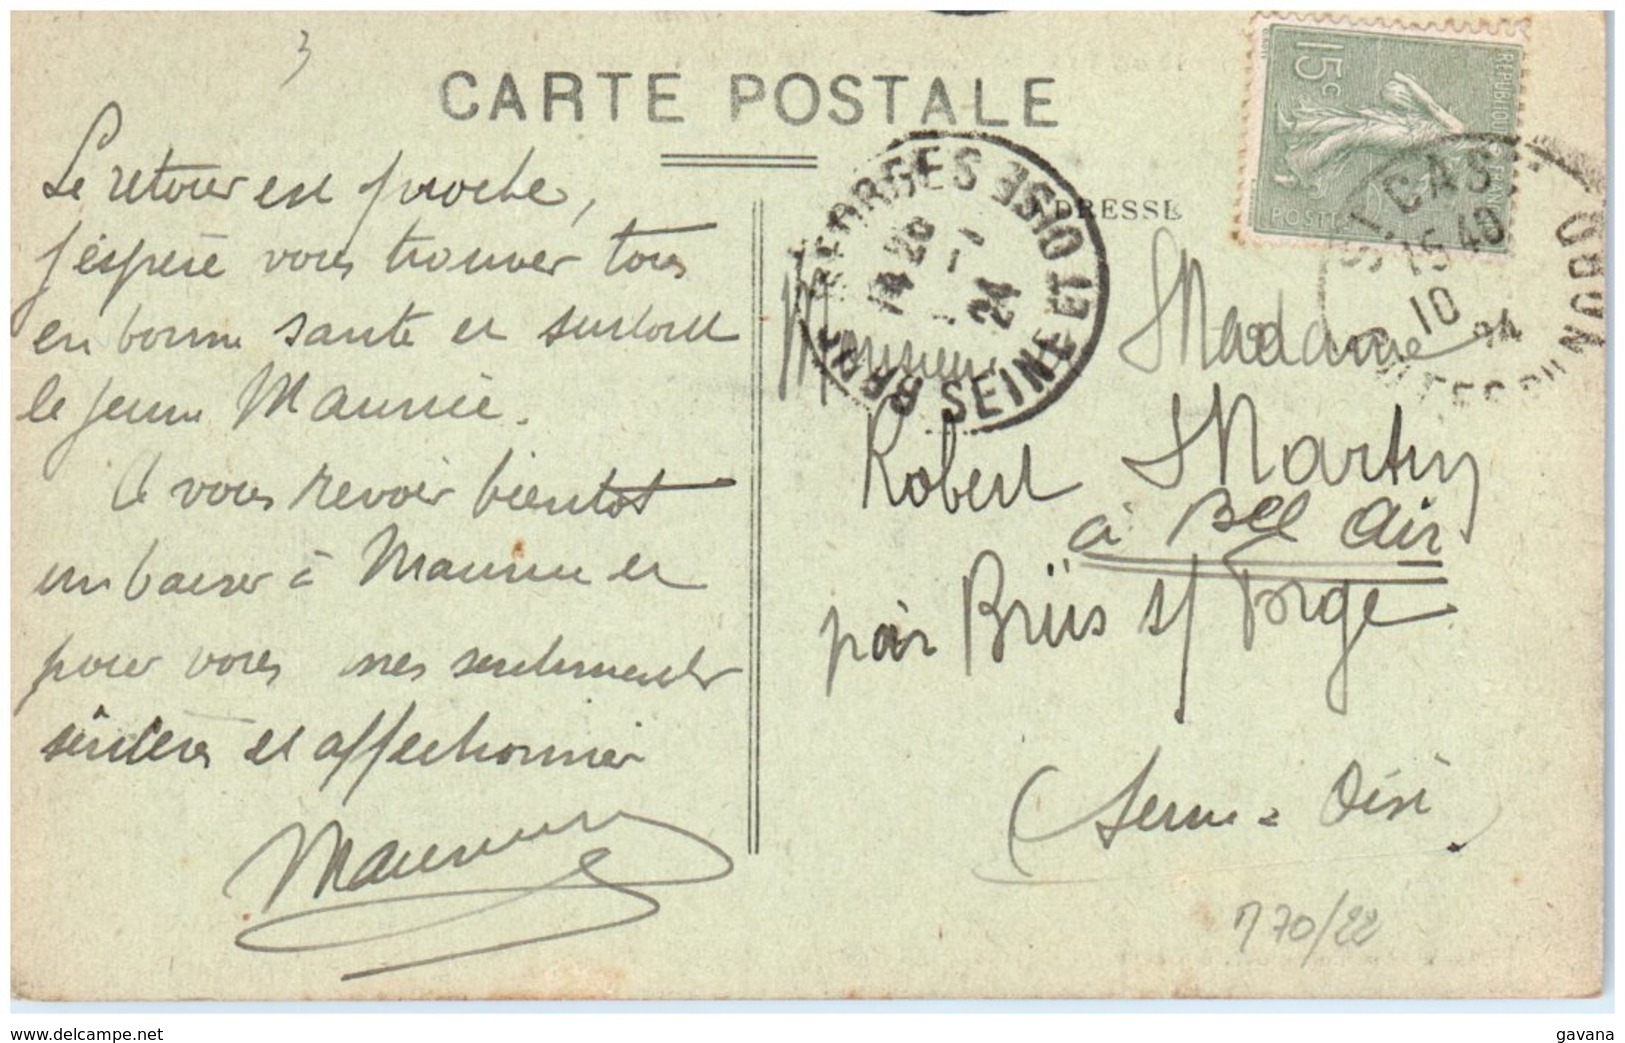 3
CARTE POSTALE
ADRESSE
Le retour est proche,
j'espère vous trouver tous
en bonne santé et surtout
le jeune Maurice.
A vous revoir bientôt
un baiser à Maurice et
pour vous mes sentiments
sincères et affectionnés
Maurice
15c
POSTES
ST CAST
15 40
10
24
CÔTES DU NORD
BRUYERES
14 20
1
24
SEINE ET OISE
Monsieur Madame
Robert Martin
à Bel air
par Briis s/ Forge
(Seine & Oise)
70/22
www.delcampe.net
gavana